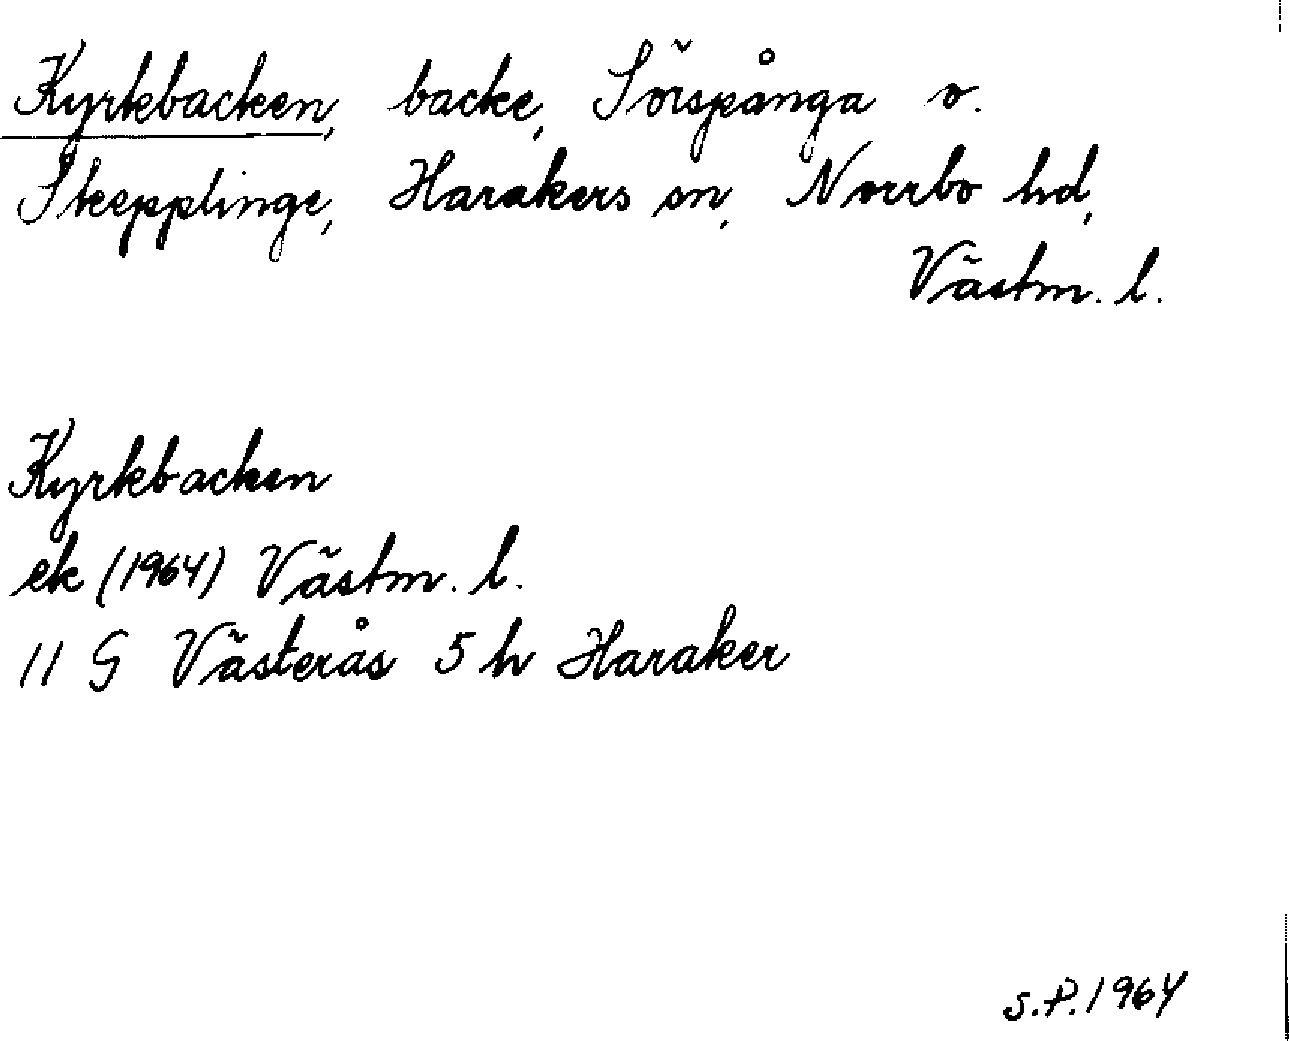 Kyrkbacken, backe, Sörspånga o.
Skepplinge, Harakers sn, Norrbo hd,
Västm. l.
Kyrkbacken
ek (1964) Västm. l.
11 G Västerås 5 h Haraker
S.P. 1964